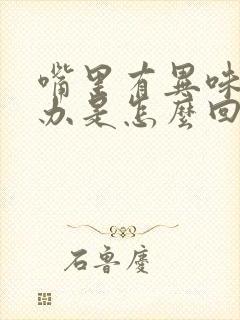 嘴里有異味
办是怎麼回
石鲁慶